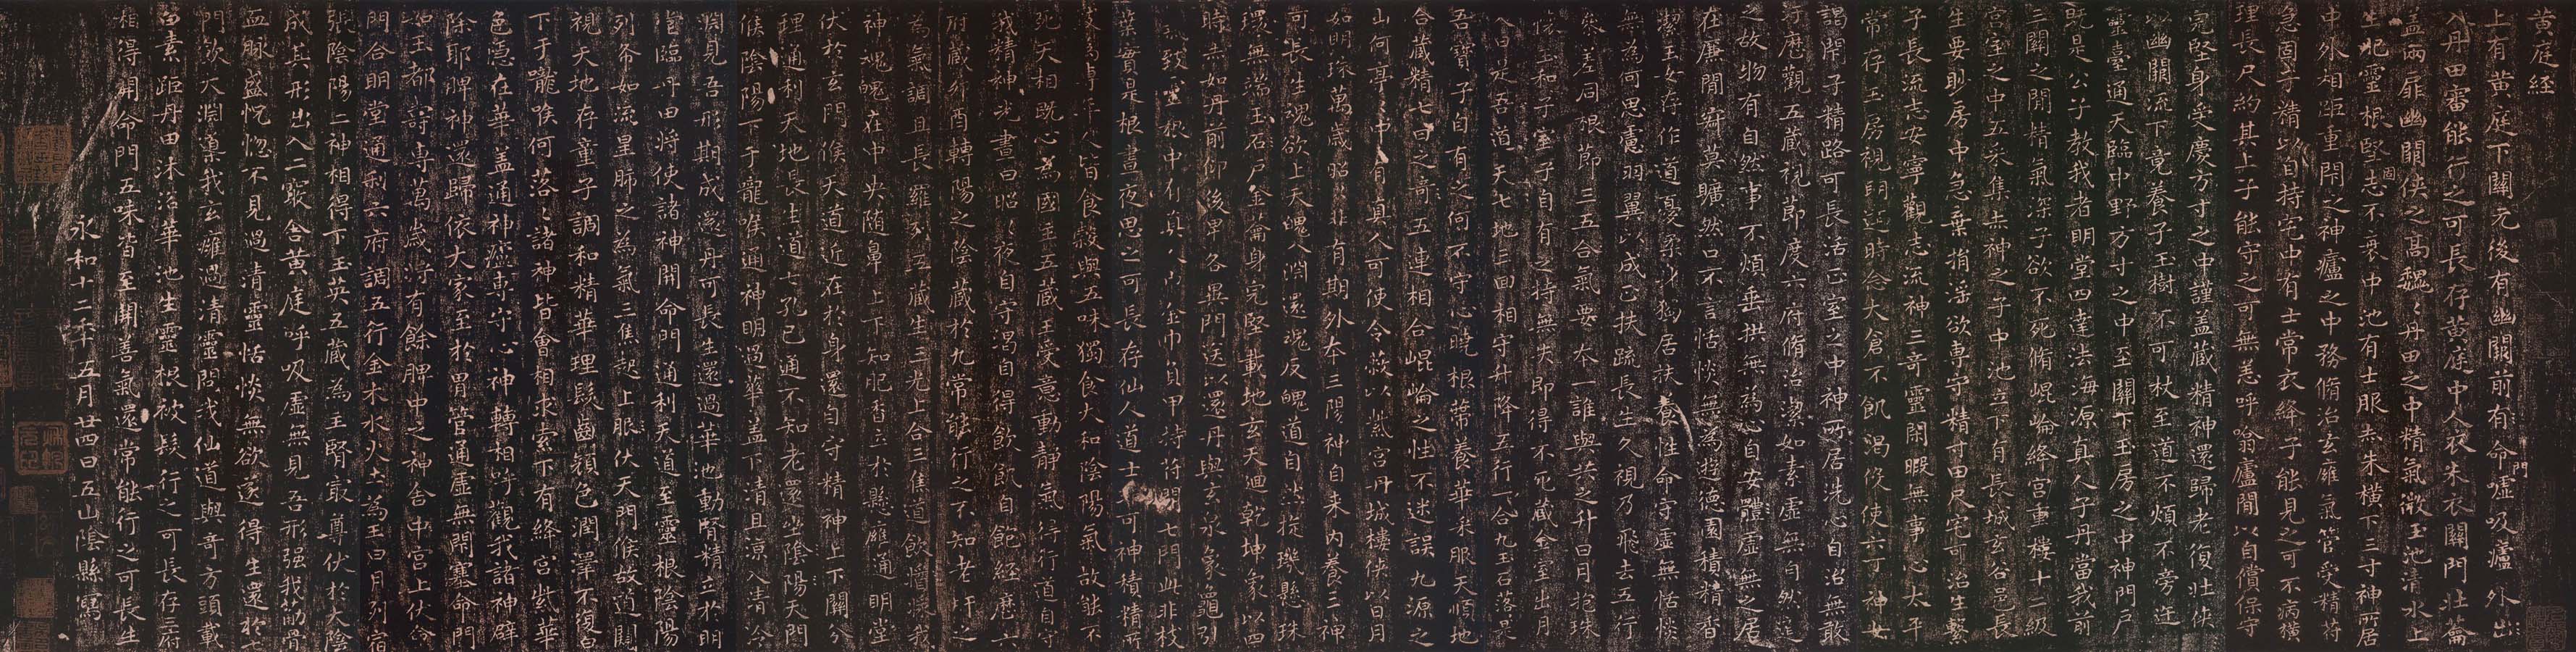 黄庭経
上有黄庭下關元後有幽關前有命門嘘吸廬外出
入丹田審能行之可長存黄庭中人衣朱衣關門壮蘥
盖兩扉幽關侠之高魏魏丹田之中精氣微玉池清水上
生肥靈根堅固志不衰中池有士服赤朱横下三寸神所居
中外相距重閇之神廬之中務脩治玄廱氣管受精符
急固子精以自持宅中有士常衣絳子能見之可不病横
理長尺約其上子能守之可無恙呼噏廬閒以自償保守
完堅身受慶方寸之中謹盖藏精神還歸老復壮侠
以幽闕流下竟養子玉樹不可杖至道不煩不旁迕
靈臺通天臨中野方寸之中至關下玉房之中神門戸
既是公子教我者明堂四達法海源真人子丹當我前
三關之閒精氣深子欲不死脩崐崘絳宫重樓十二級
宫室之中五采集赤神之子中池立下有長城玄谷邑長
生要眇房中急棄捐淫欲専守精寸田尺宅可治生繫
子長流志安寧觀志流神三奇靈閑暇無事心太平
常存玉房視明達時念大倉不飢渇役使六丁神女
謁閇子精路可長活正室之中神所居洗心自治無敢
汚歴觀五藏視節度六府脩治潔如素虚無自然道
之故物有自然事不煩垂拱無為心自安體虚無之居
在廉閒寂莫曠然口不言恬惔無為遊德園積精香
潔玉女存作道憂柔身獨居扶養性命守虚無恬惔
無為何思慮羽翼以成正扶疏長生久視乃飛去五行
參差同根節三五合氣要本一誰與共之升日月抱珠
懐玉和子室子自有之持無失即得不死藏金室出月
入日是吾道天七地三回相守升降五行一合九玉石落是
吾寶子自有之何不守心暁根蔕養華采服天順地
合藏精七日之奇五連相合崐崘之性不迷誤九源之
山何亭亭中有真人可使令蔽以紫宫丹城樓侠以日月
如明珠萬歳昭昭非有期外本三陽神自来内養三神
可長生魂欲上天魄入淵還魂反魄道自然旋璣懸珠
環無端玉石戸金蘥身完堅載地玄天迴乾坤象以四
時赤如丹前仰後卑各異門送以還丹與玄泉象龜引
氣致靈根中有真人巾金巾負甲持符開七門此非枝
葉實是根晝夜思之可長存仙人道士非可神積精所
致和専仁人皆食穀與五味獨食太和陰陽氣故能不
死天相既心為國主五藏王受意動静氣得行道自守
我精神光晝日昭昭夜自守渇自得飲飢自飽経歴六
府藏夘酉轉陽之陰藏於九常能行之不知老肝之
為氣調且長羅列五藏生三光上合三焦道飲醤漿我
神魂魄在中央随鼻上下知肥香立於懸廱通明堂
伏於玄門候天道近在於身還自守精神上下關分
理通利天地長生道七孔已通不知老還坐陰陽天門
候陰陽下于龍喉通神明過華盖下清且凉入清泠
淵見吾形期成還丹可長生還過華池動腎精立於明
堂臨丹田将使諸神開命門通利天道至靈根陰陽
列布如流星肺之為氣三焦起上服伏天門候故道闚
視天地存童子調和精華理髮齒顔色潤澤不復白
下于嚨喉何落落諸神皆會相求索下有絳宫紫華
色隠在華盖通神廬専守心神轉相呼觀我諸神辟
除耶脾神還歸依大家至於胃管通虚無閇塞命門
如玉都壽専萬歳将有餘脾中之神舎中宫上伏命
門合明堂通利六府調五行金木水火土為王日月列宿
張陰陽二神相得下玉英五藏為主腎最尊伏於大陰
成其形出入二竅舎黄庭呼吸虚無見吾形强我筋骨
血脉盛怳惚不見過清靈恬惔無欲遂得生還於七
門飲大淵導我玄廱過清靈問我仙道與奇方頭載
白素距丹田沐浴華池生靈根被髮行之可長存三府
相得開命門五味皆至開善氣還常能行之可長生
永和十二年五月廿四日五山陰縣寫